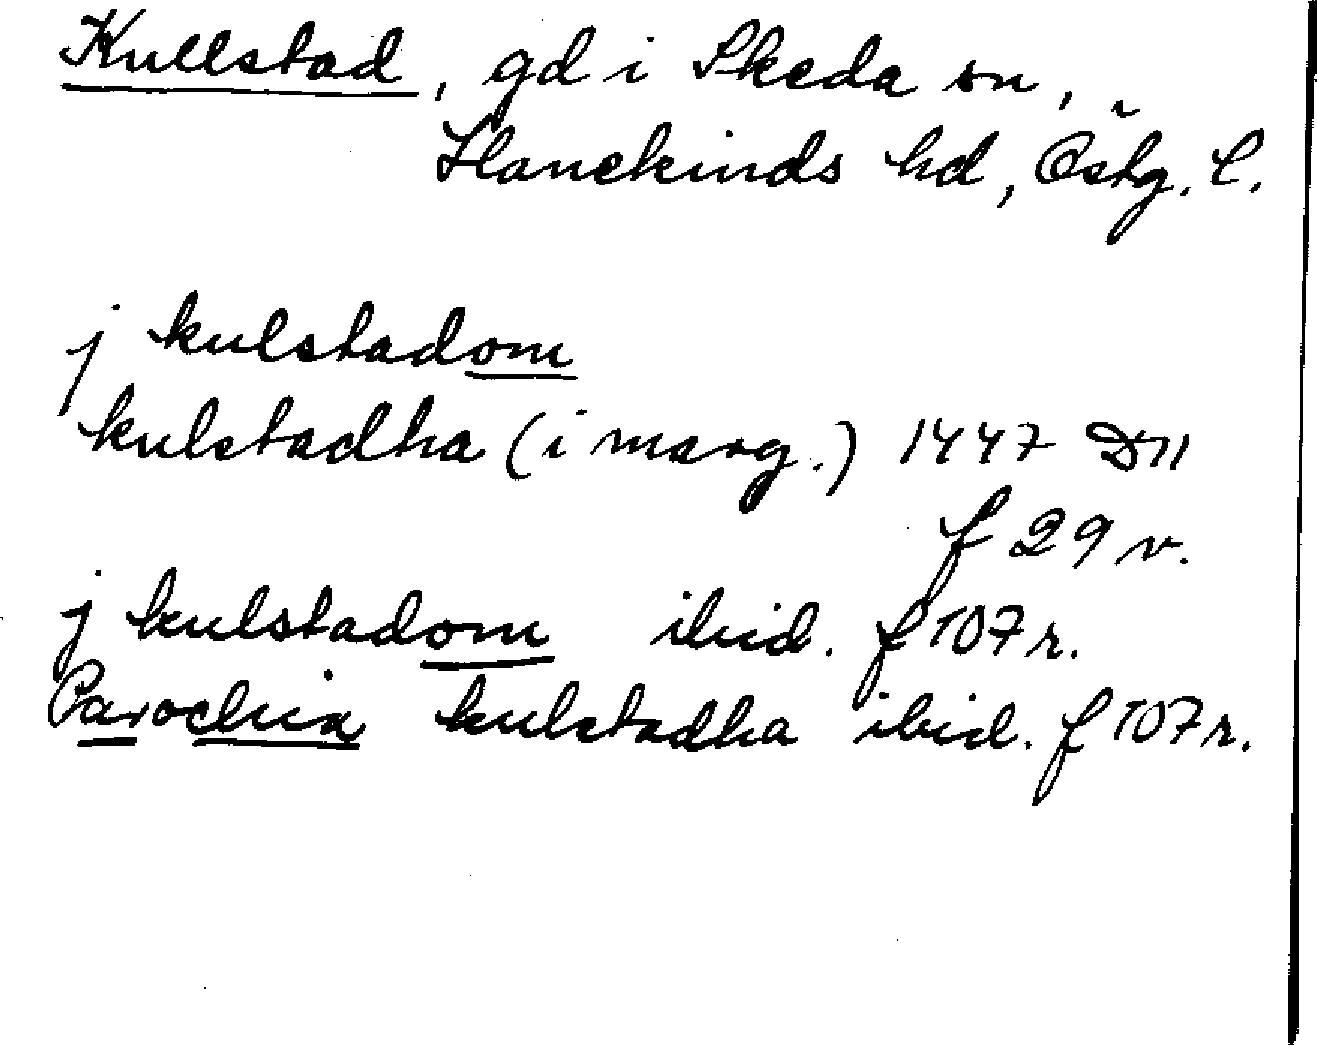 Kullstad, gd i Skeda sn,
Hanekinds hd, Östg. l.
j kulstadom
kulstadha (i marg.) 1447 D11
f 29 v.
j kulstadom ibid. f 107 r.
Parochia kulstadha ibid. f 107 r.